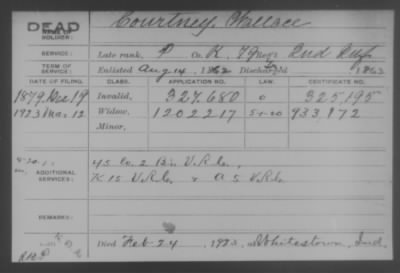 DEAD
NAME OF SOLDIER:
Courtney Wallace
SERVICE: Late rank, P Co. K, 79 Regt Ind Inf.
TERM OF SERVICE: Enlisted Aug 14, 1862 Discharged 1863
DATE OF FILING. CLASS. APPLICATION NO. LAW. CERTIFICATE NO.
1879, Dec 19 Invalid, 327,680 325,195
1923 Mar. 12 Widow, 1202217 5-1-20 933,172
Minor,
ADDITIONAL SERVICES:
45 Co. 2 Bn. V.R.C.,
K 15 V.R.C. & A 5 V.R.C.
REMARKS:
Died Feb 24, 1923, Whitestown, Ind.